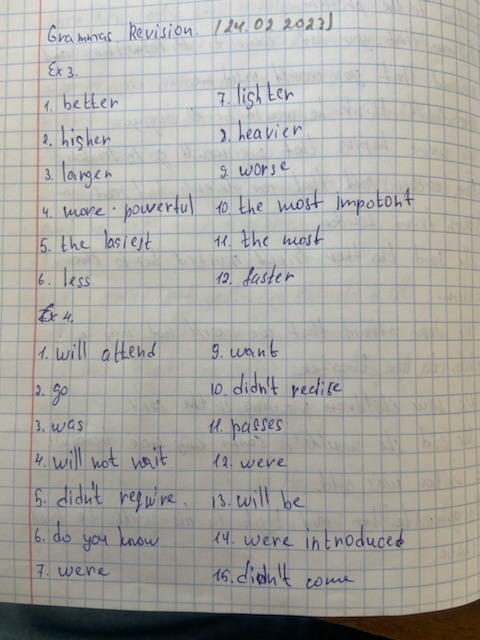 Grammar Revision. (24.02 2023)
Ex 3.
1. better
2. higher
3. larger
4. more powerful
5. the lasiest
6. less
7. lighter
8. heavier
9. worse
10 the most impotont
11. the most
12. faster
Ex 4.
1. will attend
2. go
3. was
4. will not wait
5. didn't require.
6. do you know
7. were
9. want
10. didn't redise
11. passes
12. were
13. will be
14. were introduced
15. didn't come